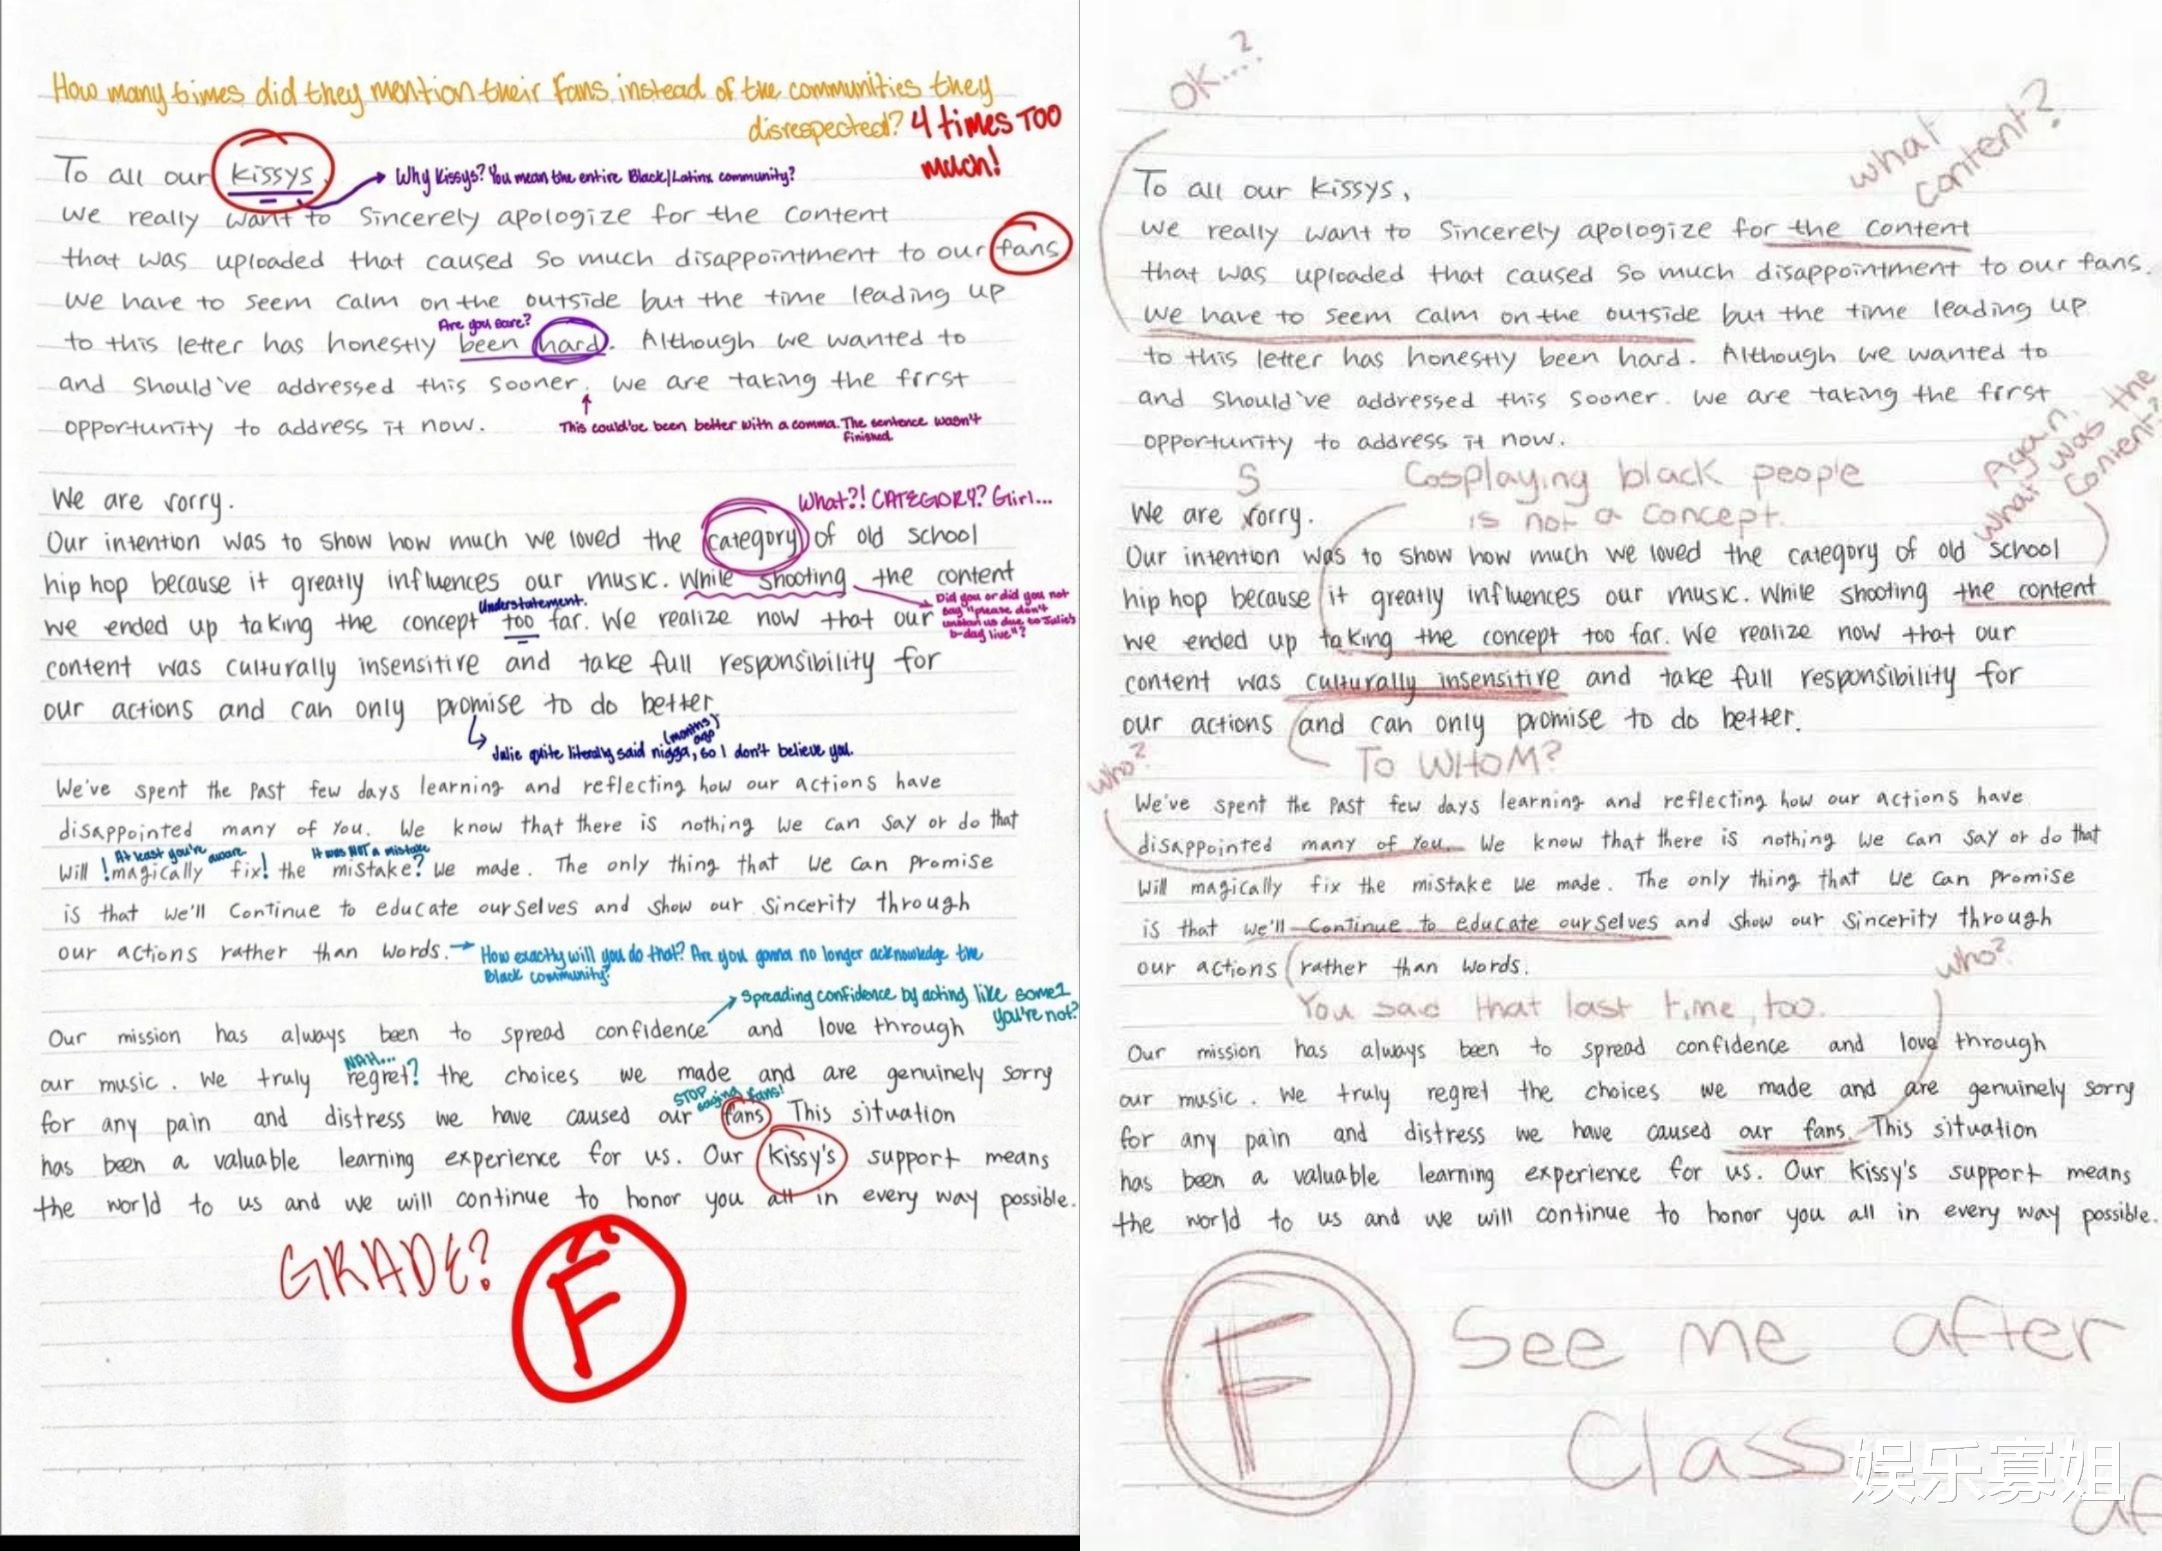 How many times did they mention their fans instead of the communities they
disrespected? 4 times TOO
much!
To all our kissys,
Why Kissys? You mean the entire Black/Latinx community?
We really want to sincerely apologize for the content
that was uploaded that caused so much disappointment to our fans.
We have to seem calm on the outside but the time leading up
Are you sure?
to this letter has honestly been hard. Although we wanted to
and should've addressed this sooner. We are taking the first
opportunity to address it now.
This could've been better with a comma. The sentence wasn't
finished.
We are sorry.
What?! CATEGORY? Girl...
Our intention was to show how much we loved the category of old school
hip hop because it greatly influences our music. While shooting the content
Understatement.
Did you or did you not
say "please don't
unstan us due to Julie's
b-day live"?
we ended up taking the concept too far. We realize now that our
content was culturally insensitive and take full responsibility for
our actions and can only promise to do better
(months)
ago
Julie quite literally said nigga, so I don't believe you.
We've spent the past few days learning and reflecting how our actions have
disappointed many of you. We know that there is nothing we can say or do that
At least you're aware
It was NOT a mistake
will !magically fix! the mistake? we made. The only thing that we can promise
is that we'll continue to educate ourselves and show our sincerity through
our actions rather than words.
How exactly will you do that? Are you gonna no longer acknowledge the
Black community?
Spreading confidence by acting like some1
you're not?
Our mission has always been to spread confidence and love through
NAH...
our music. We truly regret? the choices we made and are genuinely sorry
STOP
saying fans!
for any pain and distress we have caused our fans This situation
has been a valuable learning experience for us. Our kissy's support means
the world to us and we will continue to honor you all in every way possible.
GRADE? F
OK...?
what
content?
To all our kissys,
We really want to sincerely apologize for the content
that was uploaded that caused so much disappointment to our fans.
We have to seem calm on the outside but the time leading up
to this letter has honestly been hard. Although we wanted to
and should've addressed this sooner. We are taking the first
opportunity to address it now.
Again,
what was the
content?
S
Cosplaying black people
is not a concept.
We are sorry.
Our intention was to show how much we loved the category of old school
hip hop because it greatly influences our music. While shooting the content
we ended up taking the concept too far. We realize now that our
content was culturally insensitive and take full responsibility for
our actions and can only promise to do better.
Who?
To WHOM?
We've spent the past few days learning and reflecting how our actions have
disappointed many of you. We know that there is nothing we can say or do that
will magically fix the mistake we made. The only thing that we can promise
is that we'll continue to educate ourselves and show our sincerity through
our actions rather than words.
who?
You said that last time, too.
Our mission has always been to spread confidence and love through
our music. We truly regret the choices we made and are genuinely sorry
for any pain and distress we have caused our fans. This situation
has been a valuable learning experience for us. Our kissy's support means
the world to us and we will continue to honor you all in every way possible.
F
See me after
Class
af
娱乐寡姐